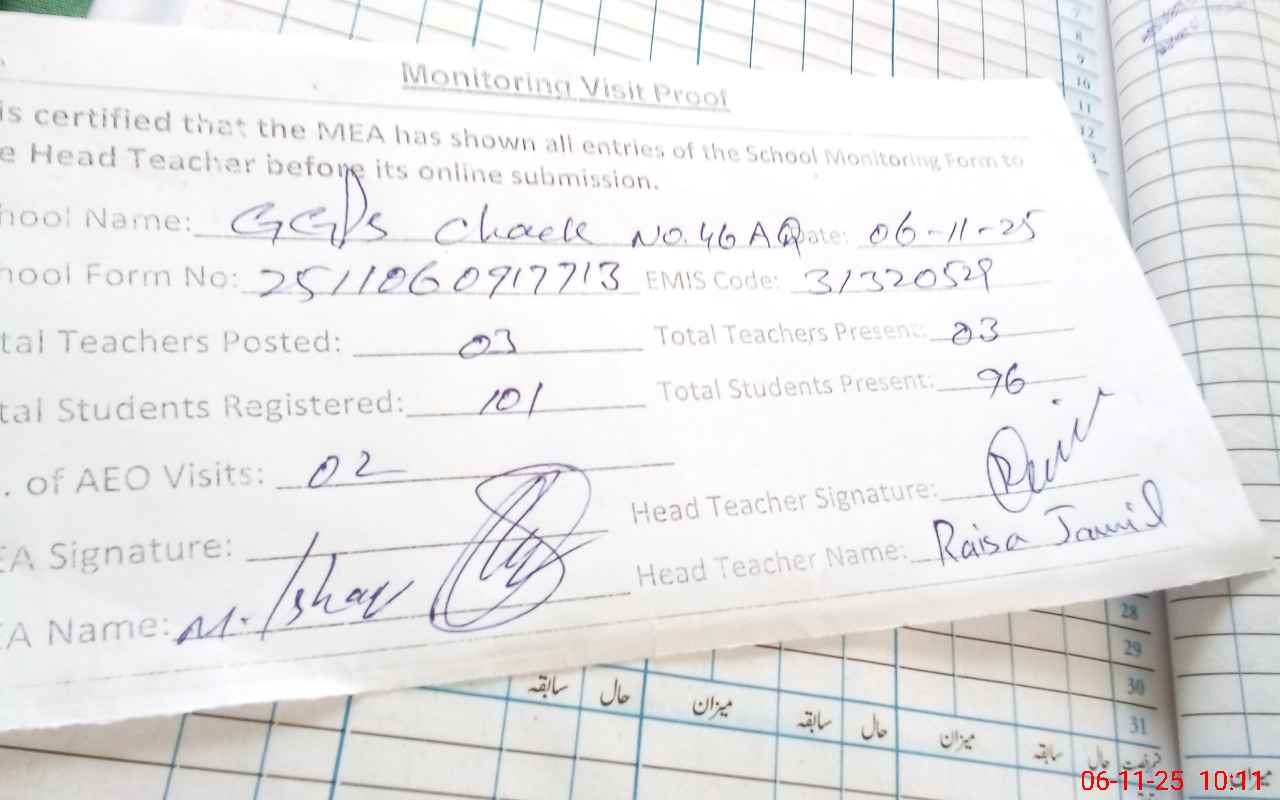 Monitoring Visit Proof
is certified that the MEA has shown all entries of the School Monitoring Form to
e Head Teacher before its online submission.
hool Name: GGPS Chack No. 46 A Date: 06-11-25
hool Form No: 2511060917713 EMIS Code: 31320529
tal Teachers Posted: 03 Total Teachers Present: 03
tal Students Registered: 101 Total Students Present: 96
. of AEO Visits: 02
Head Teacher Signature:
EA Signature:
Head Teacher Name: Raisa Jamil
EA Name: M. Ishaq
7
8
9
10
11
12
28
29
30
31
سابقہ حال میزان سابقہ حال میزان سابقہ حال
میزان
06-11-25 10:11